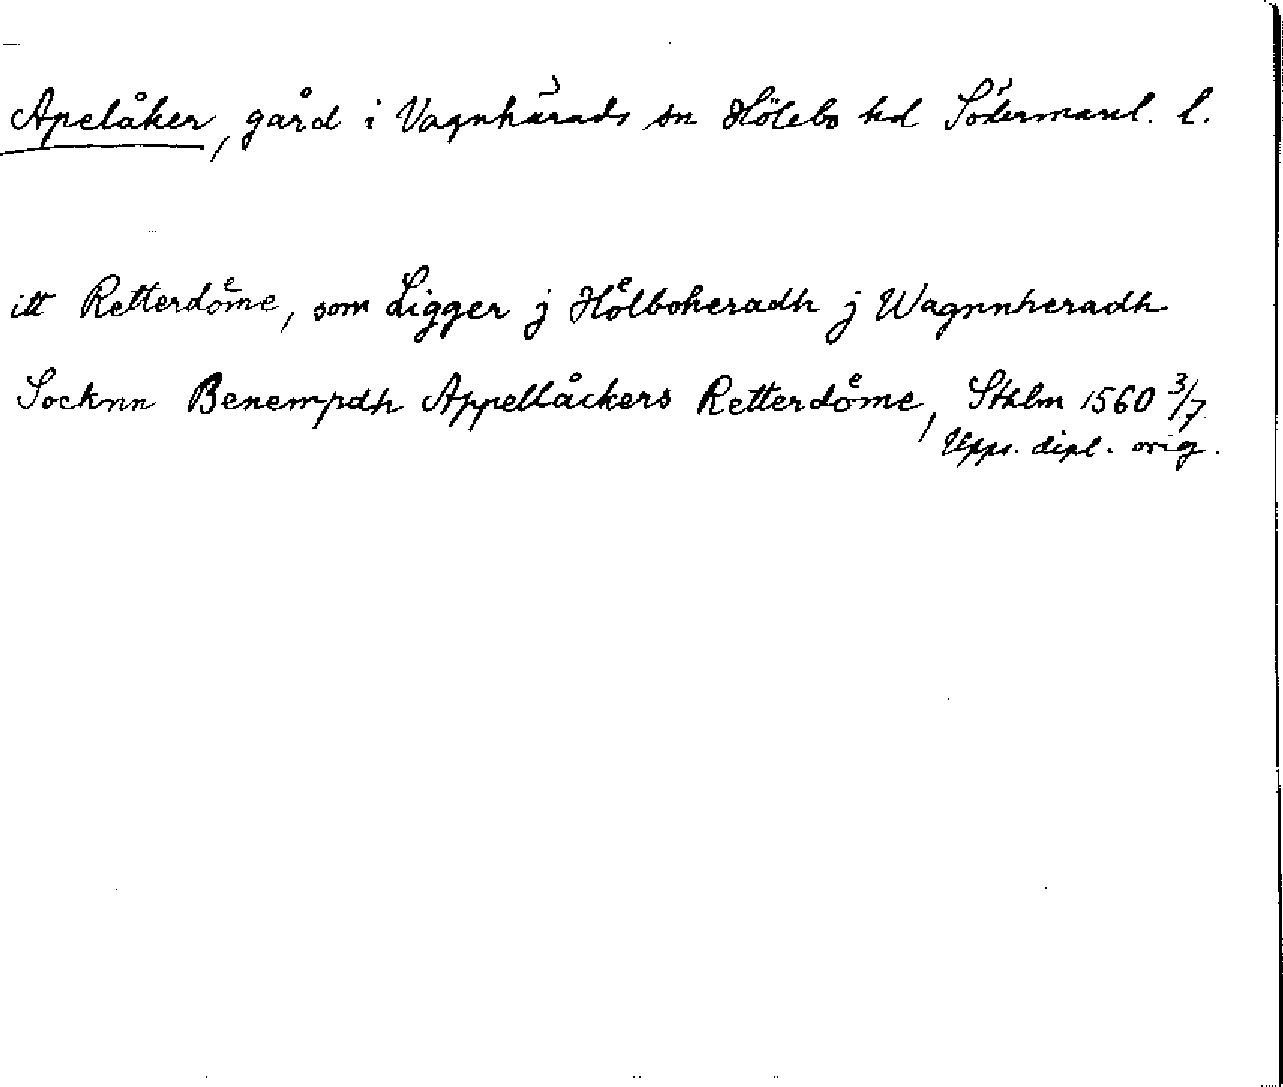 Apelåker, gård i Vagnhärads sn Hölebo hd Södermanl. l.
itt Retterdoͤme, som Ligger j Hoͤlboheradh j Wagnnheradh
Socknn Benempdh Appellåckers Retterdoͤme, Sthlm 1560 3/7
Upps. dipl. orig.